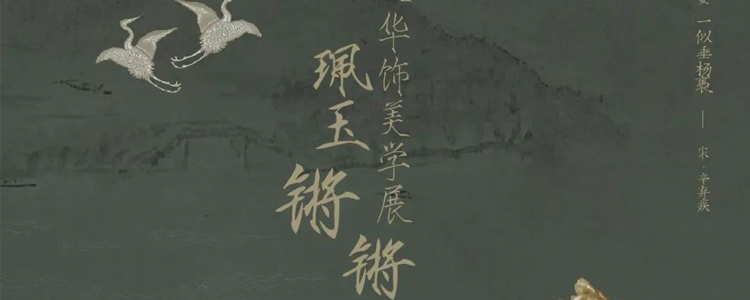 一似垂杨袅 —— 宋·辛弃疾
华饰美学展
珮玉锵锵